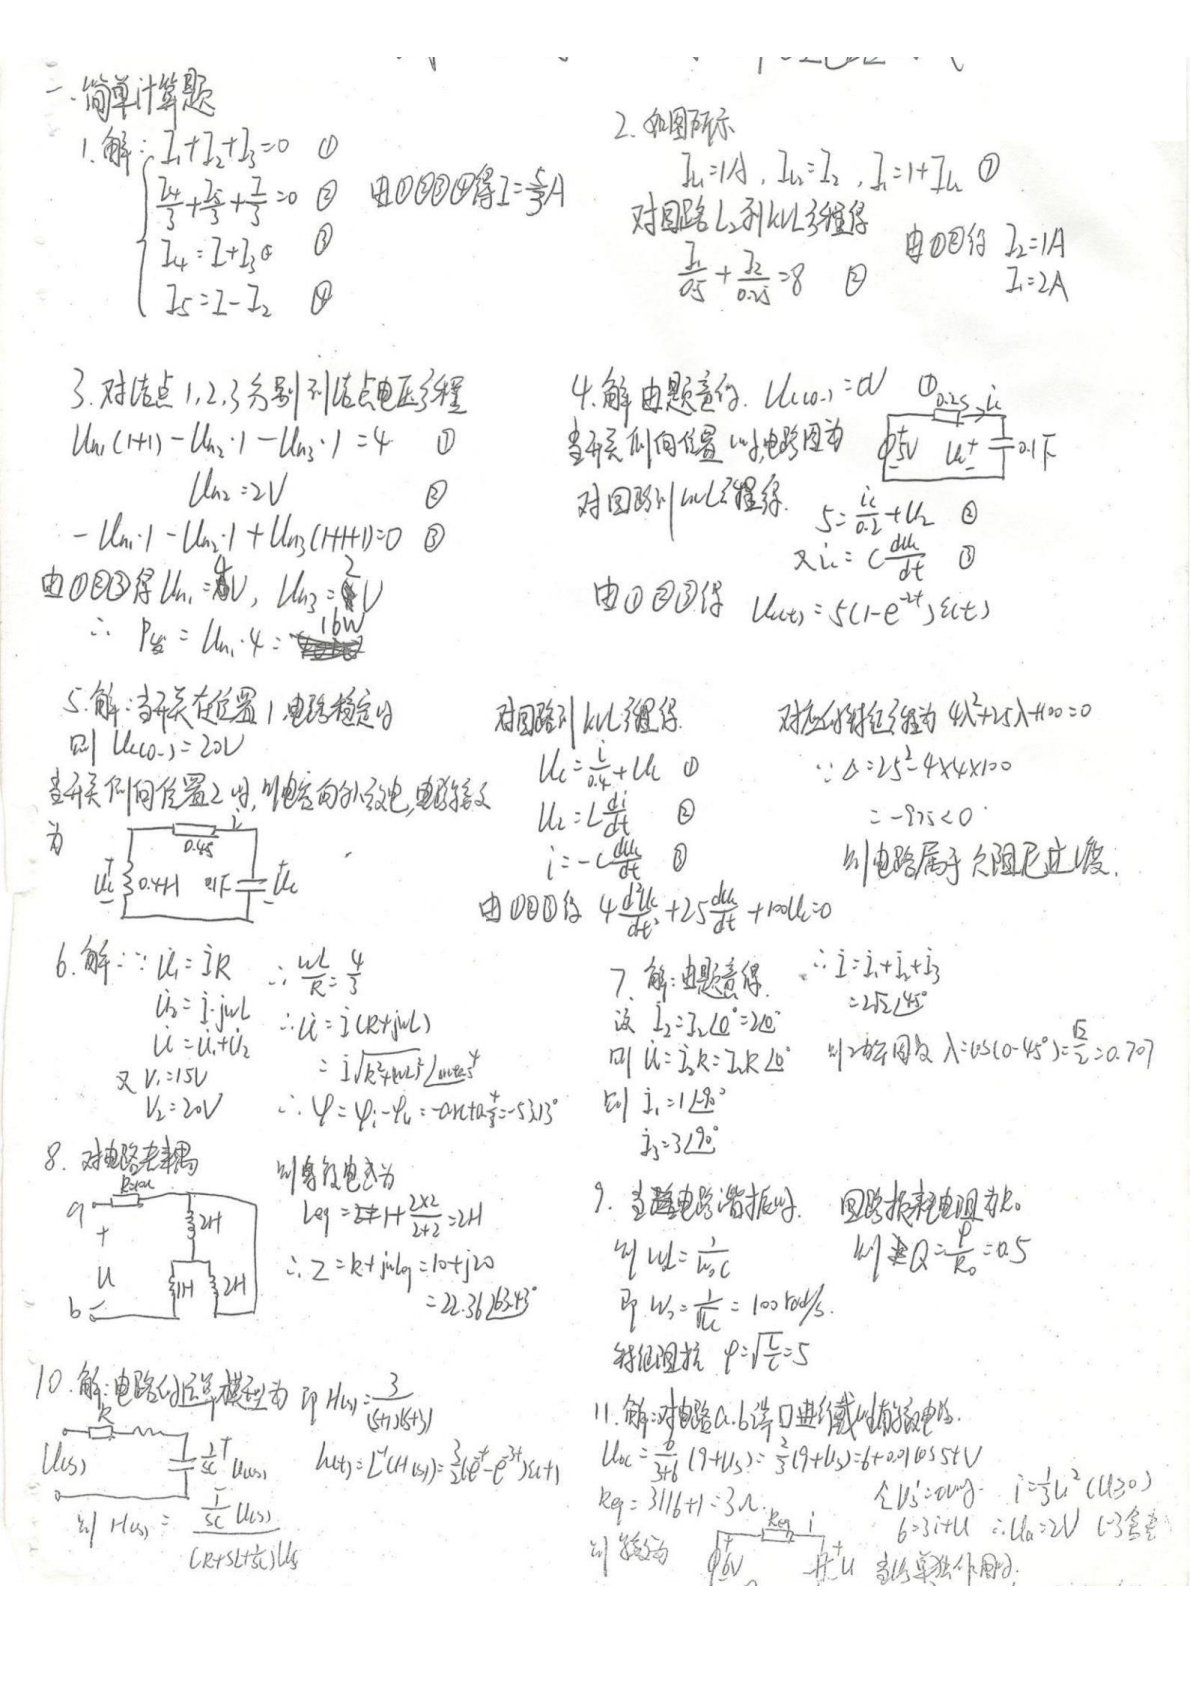 一.简单计算题
1.解: I₁+I₂+I₃=0 ①
I₄/3+I₅/3+I/3=0 ②
I₄=I+I₃ ③
I₅=I-I₂ ④
由①②③④得I=5/3A
2. 如图所示
I₁=1A, I₂=I₂, I₁=1+I₂ ①
对回路L₂列KVL方程得
I₁/0.5+I₂/0.25=8 ②
由①②得 I₂=1A
I₁=2A
3.对结点1,2,3分别列结点电压方程
Un₁(1+1)-Un₂·1-Un₃·1=4 ①
Un₂=2V ②
-Un₁·1-Un₂·1+Un₃(1+1+1)=0 ③
由①②③得Un₁=4V, Un₃=2V
∴ P发=Un₁·4=16W
4.解由题意得. Uc(0-)=0V ①
当开关倒向位置 时,电路图为
0.2S ic
5V Uc 0.1F
对回路列KVL方程得.
5=ic/0.2+Uc ②
又ic=C duc/dt ③
由①②③得 Uc(t)=5(1-e^-2t)ε(t)
5.解:当开关在位置1,电路稳定时
则 Uc(0-)=20V
当开关倒向位置2时,则电容向外放电,电路等效
为
0.4S
UL 0.4H 0.1F Uc
对回路列KVL方程得.
Uc=i/0.4+UL ①
UL=L di/dt ②
i=-C duc/dt ③
由①②③得 4 d²uc/dt²+25 duc/dt+100Uc=0
对应的特征方程为 4λ²+25λ+100=0
∵Δ=25²-4×4×100
=-975<0
则电路属于欠阻尼过渡.
6.解:∵ U̇₁=İR
U̇₂=İ·jωL
U̇=U̇₁+U̇₂
又 V₁=15V
V₂=20V
∴ωL/R=4/3
∴U̇=İ(R+jωL)
∴φ=φi-φu=-arctan4/3=-53.13°
7. 解:由题意得.
设 İ₂=I₂∠0°=2∠0°
则 U̇=İ₂R=I₂R∠0°
则 İ₁=1∠-90°
İ₃=3∠90°
∴İ=İ₁+İ₂+İ₃
=2√2∠45°
则功率因数 λ=cos(0-45°)=√2/2=0.707
8. 对电路去耦
R=10Ω
a
+
U
-
b
2H
1H 2H
则等效电感为
Leq=1+2×2/(2+2)=2H
∴Z=R+jωLeq=10+j20
=22.36∠63.43°
9. 当电路谐振时.
则 ω₀L=1/ω₀C
即 ω₀=1/√LC=100rad/s.
特征阻抗 ρ=√L/C=5
回路损耗电阻为R₀
则 Q=ρ/R₀=0.5
10.解:电路的运算模型为
R
U(s) 1/sC Uc(s)
则 H(s)=1/sC U(s)/(R+sL+1/sC)Us
即 H(s)=3/(s+1)(s+3)
h(t)=L⁻¹(H(s))=3/2(e^-t-e^-3t)ε(t)
11.解:对电路a.b端口进行戴维南等效电路.
Uoc=6/(3+6)(9+Us)=2/3(9+Us)=6+0.01cos5t V
Req=3//6+1=3Ω.
则等效为
Req i
6V U
令Us=0时. i=1/3u²(u≥0)
6=3i+U ∴Ua=2V (-3舍去)
当Us单独作用时.